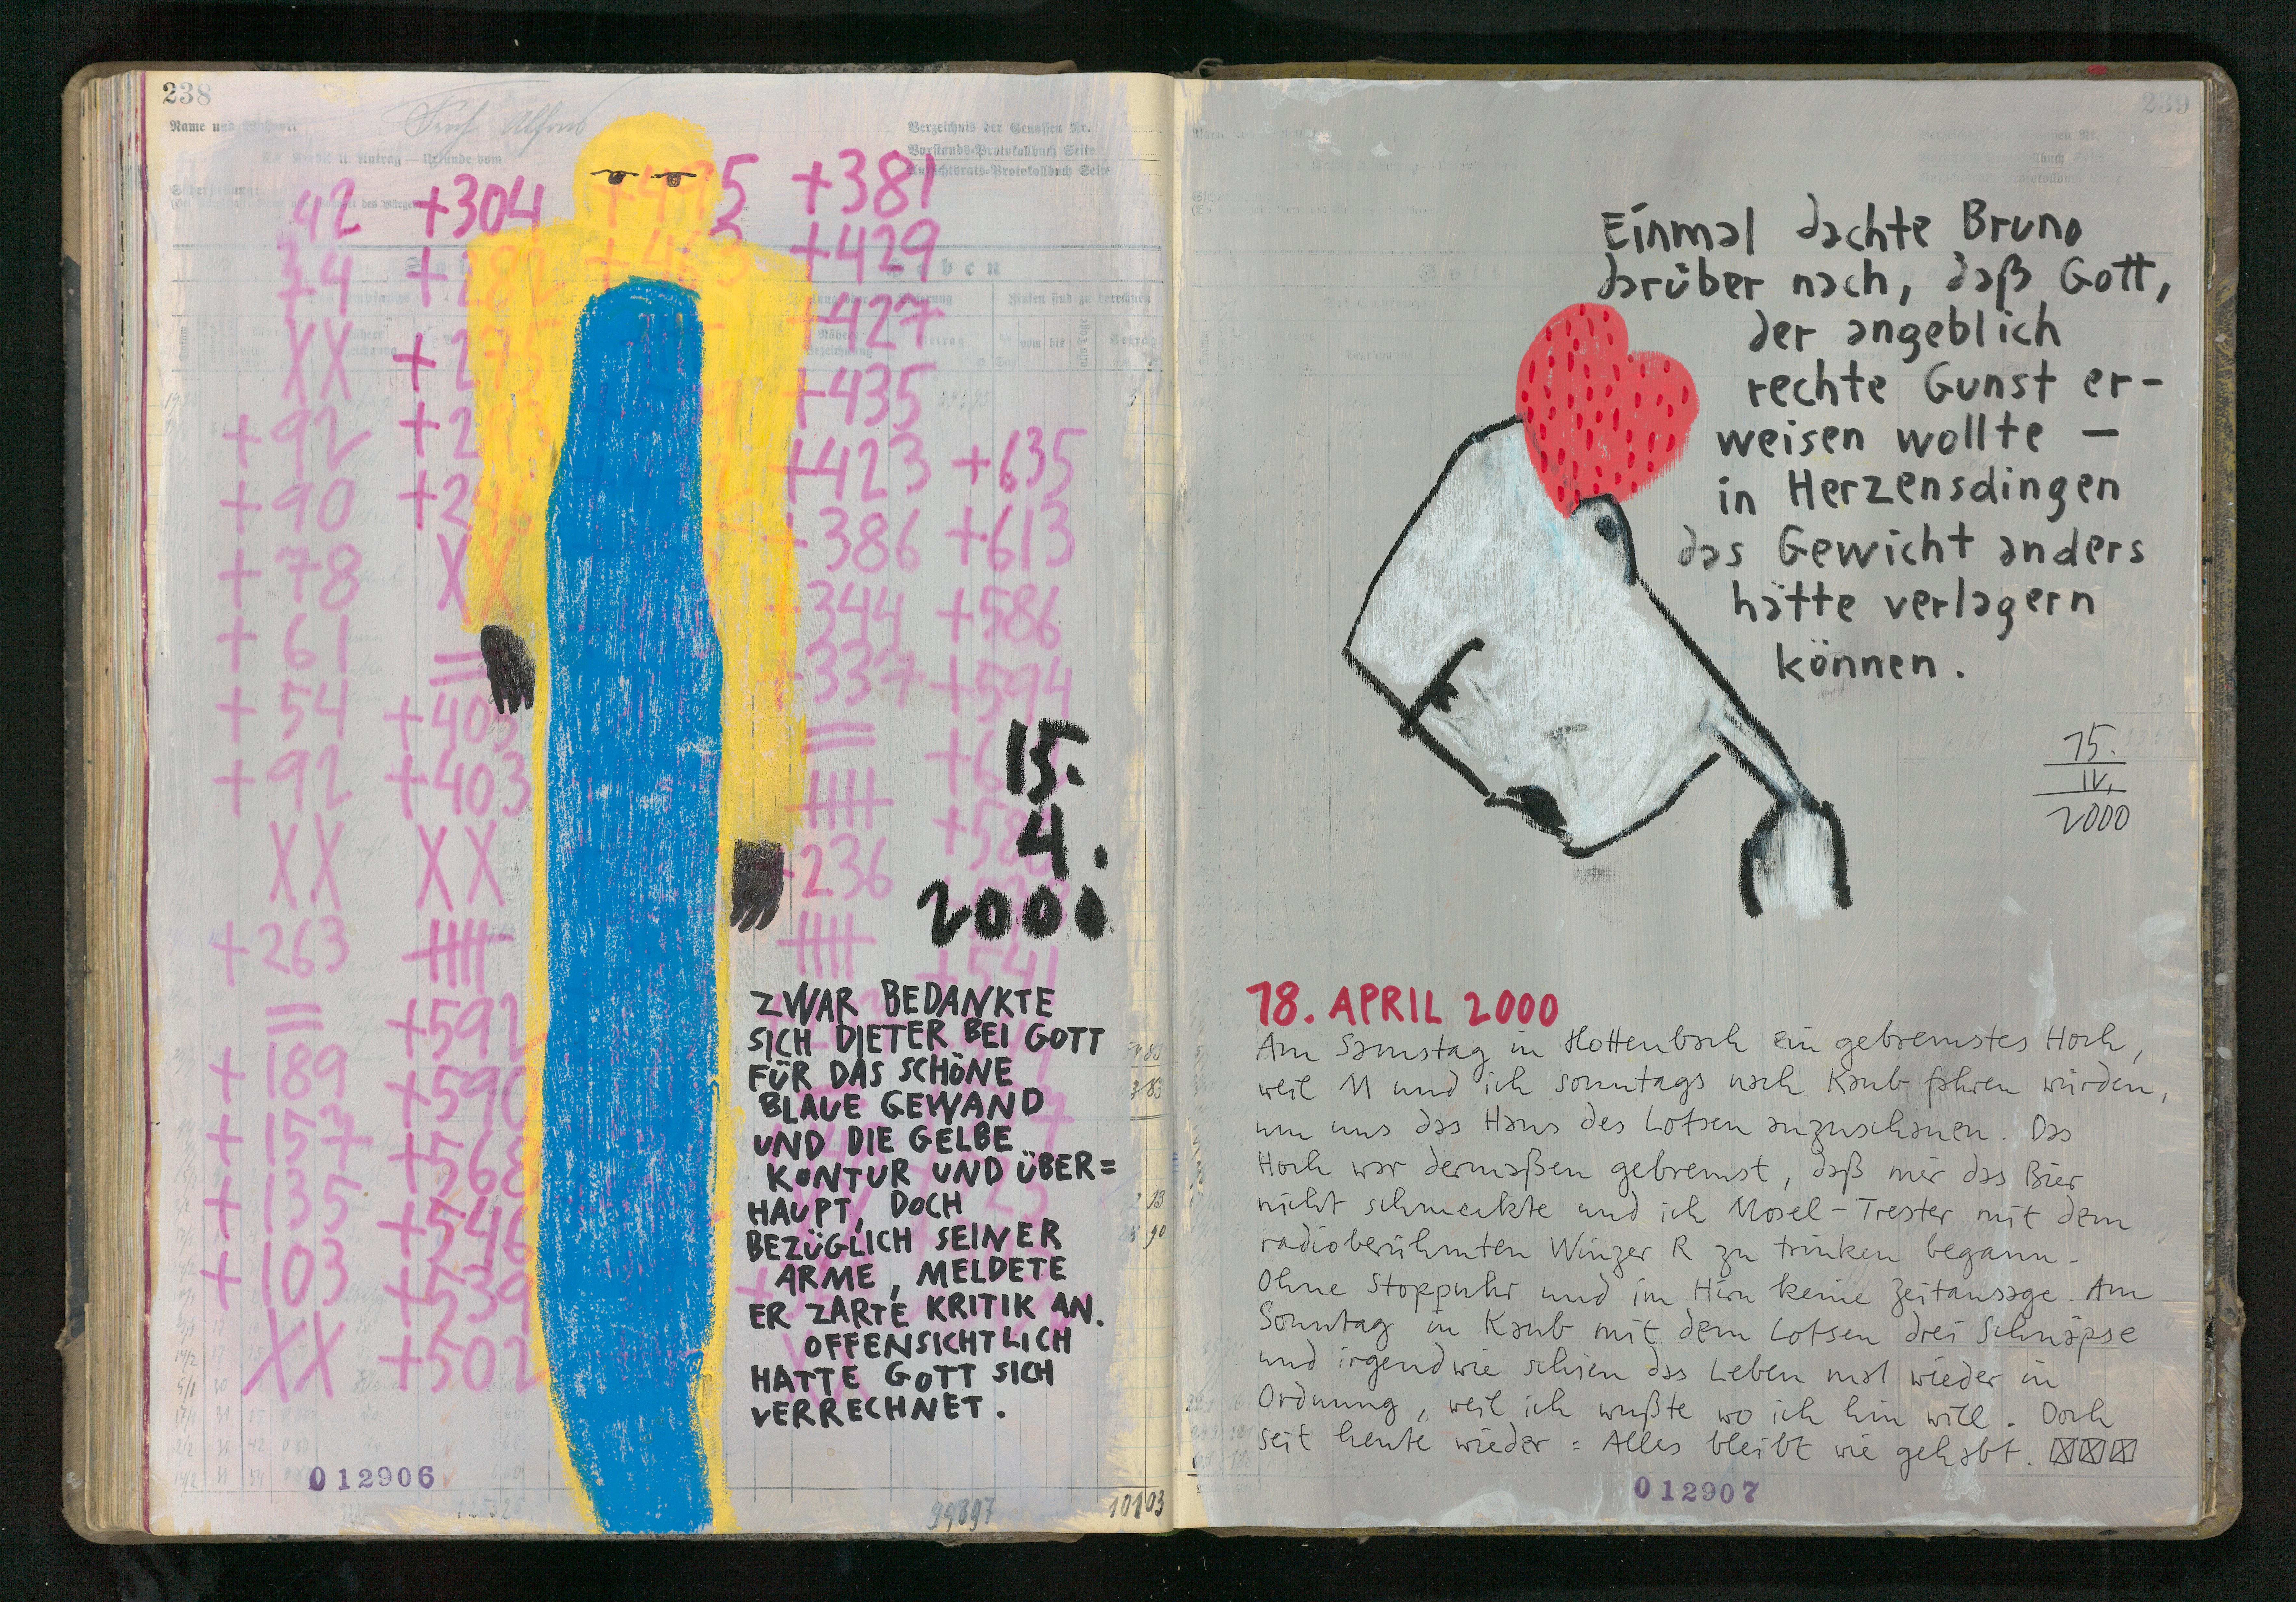 238
Name und
Verzeichnis der Genossen Nr.
Vorstands-Protokollbuch Seite
Aufsichtsrats-Protokollbuch Seite
42 +304 5 +381
74 +282 +463 +429
XX +275 +427
+92 +435
+90 +423 +635
+78 XX 386 +613
+61 = 344 +586
+54 +403 337 +594
+92 +403 =
XX XX 236
+263
= +592 +541
+189 +590
+157 +568
+135 +546
+103 +539
XX +502
15.
4.
2000
ZWAR BEDANKTE
SICH DIETER BEI GOTT
FÜR DAS SCHÖNE
BLAUE GEWAND
UND DIE GELBE
KONTUR UND ÜBER=
HAUPT, DOCH
BEZÜGLICH SEINER
ARME, MELDETE
ER ZARTE KRITIK AN.
OFFENSICHTLICH
HATTE GOTT SICH
VERRECHNET.
012906
99397
10103
239
Einmal dachte Bruno
darüber nach, daß Gott,
der angeblich
rechte Gunst er-
weisen wollte –
in Herzensdingen
das Gewicht anders
hätte verlagern
können.
15.
IV.
2000
18. APRIL 2000
Am Samstag in Hottenbach ein gebremstes Hoch,
weil M und ich sonntags nach Kaub fahren würden,
um uns das Haus des Lotsen anzuschauen. Das
Hoch war dermaßen gebremst, daß mir das Bier
nicht schmeckte und ich Mosel-Trester mit dem
radioberühmten Winzer R zu trinken begann.
Ohne Stoppuhr und im Hirn keine Zeitansage. Am
Sonntag in Kaub mit dem Lotsen drei Schnäpse
und irgendwie schien das Leben mal wieder in
Ordnung, weil ich wußte wo ich hin will. Doch
seit heute wieder: Alles bleibt wie gehabt.
012907